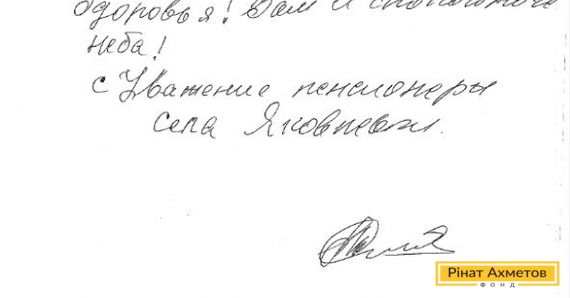 Здоровья! Вам и спокойного
неба!
с Уважение пенсионеры
села Яковлевки.
Рінат Ахметов
ФОНД